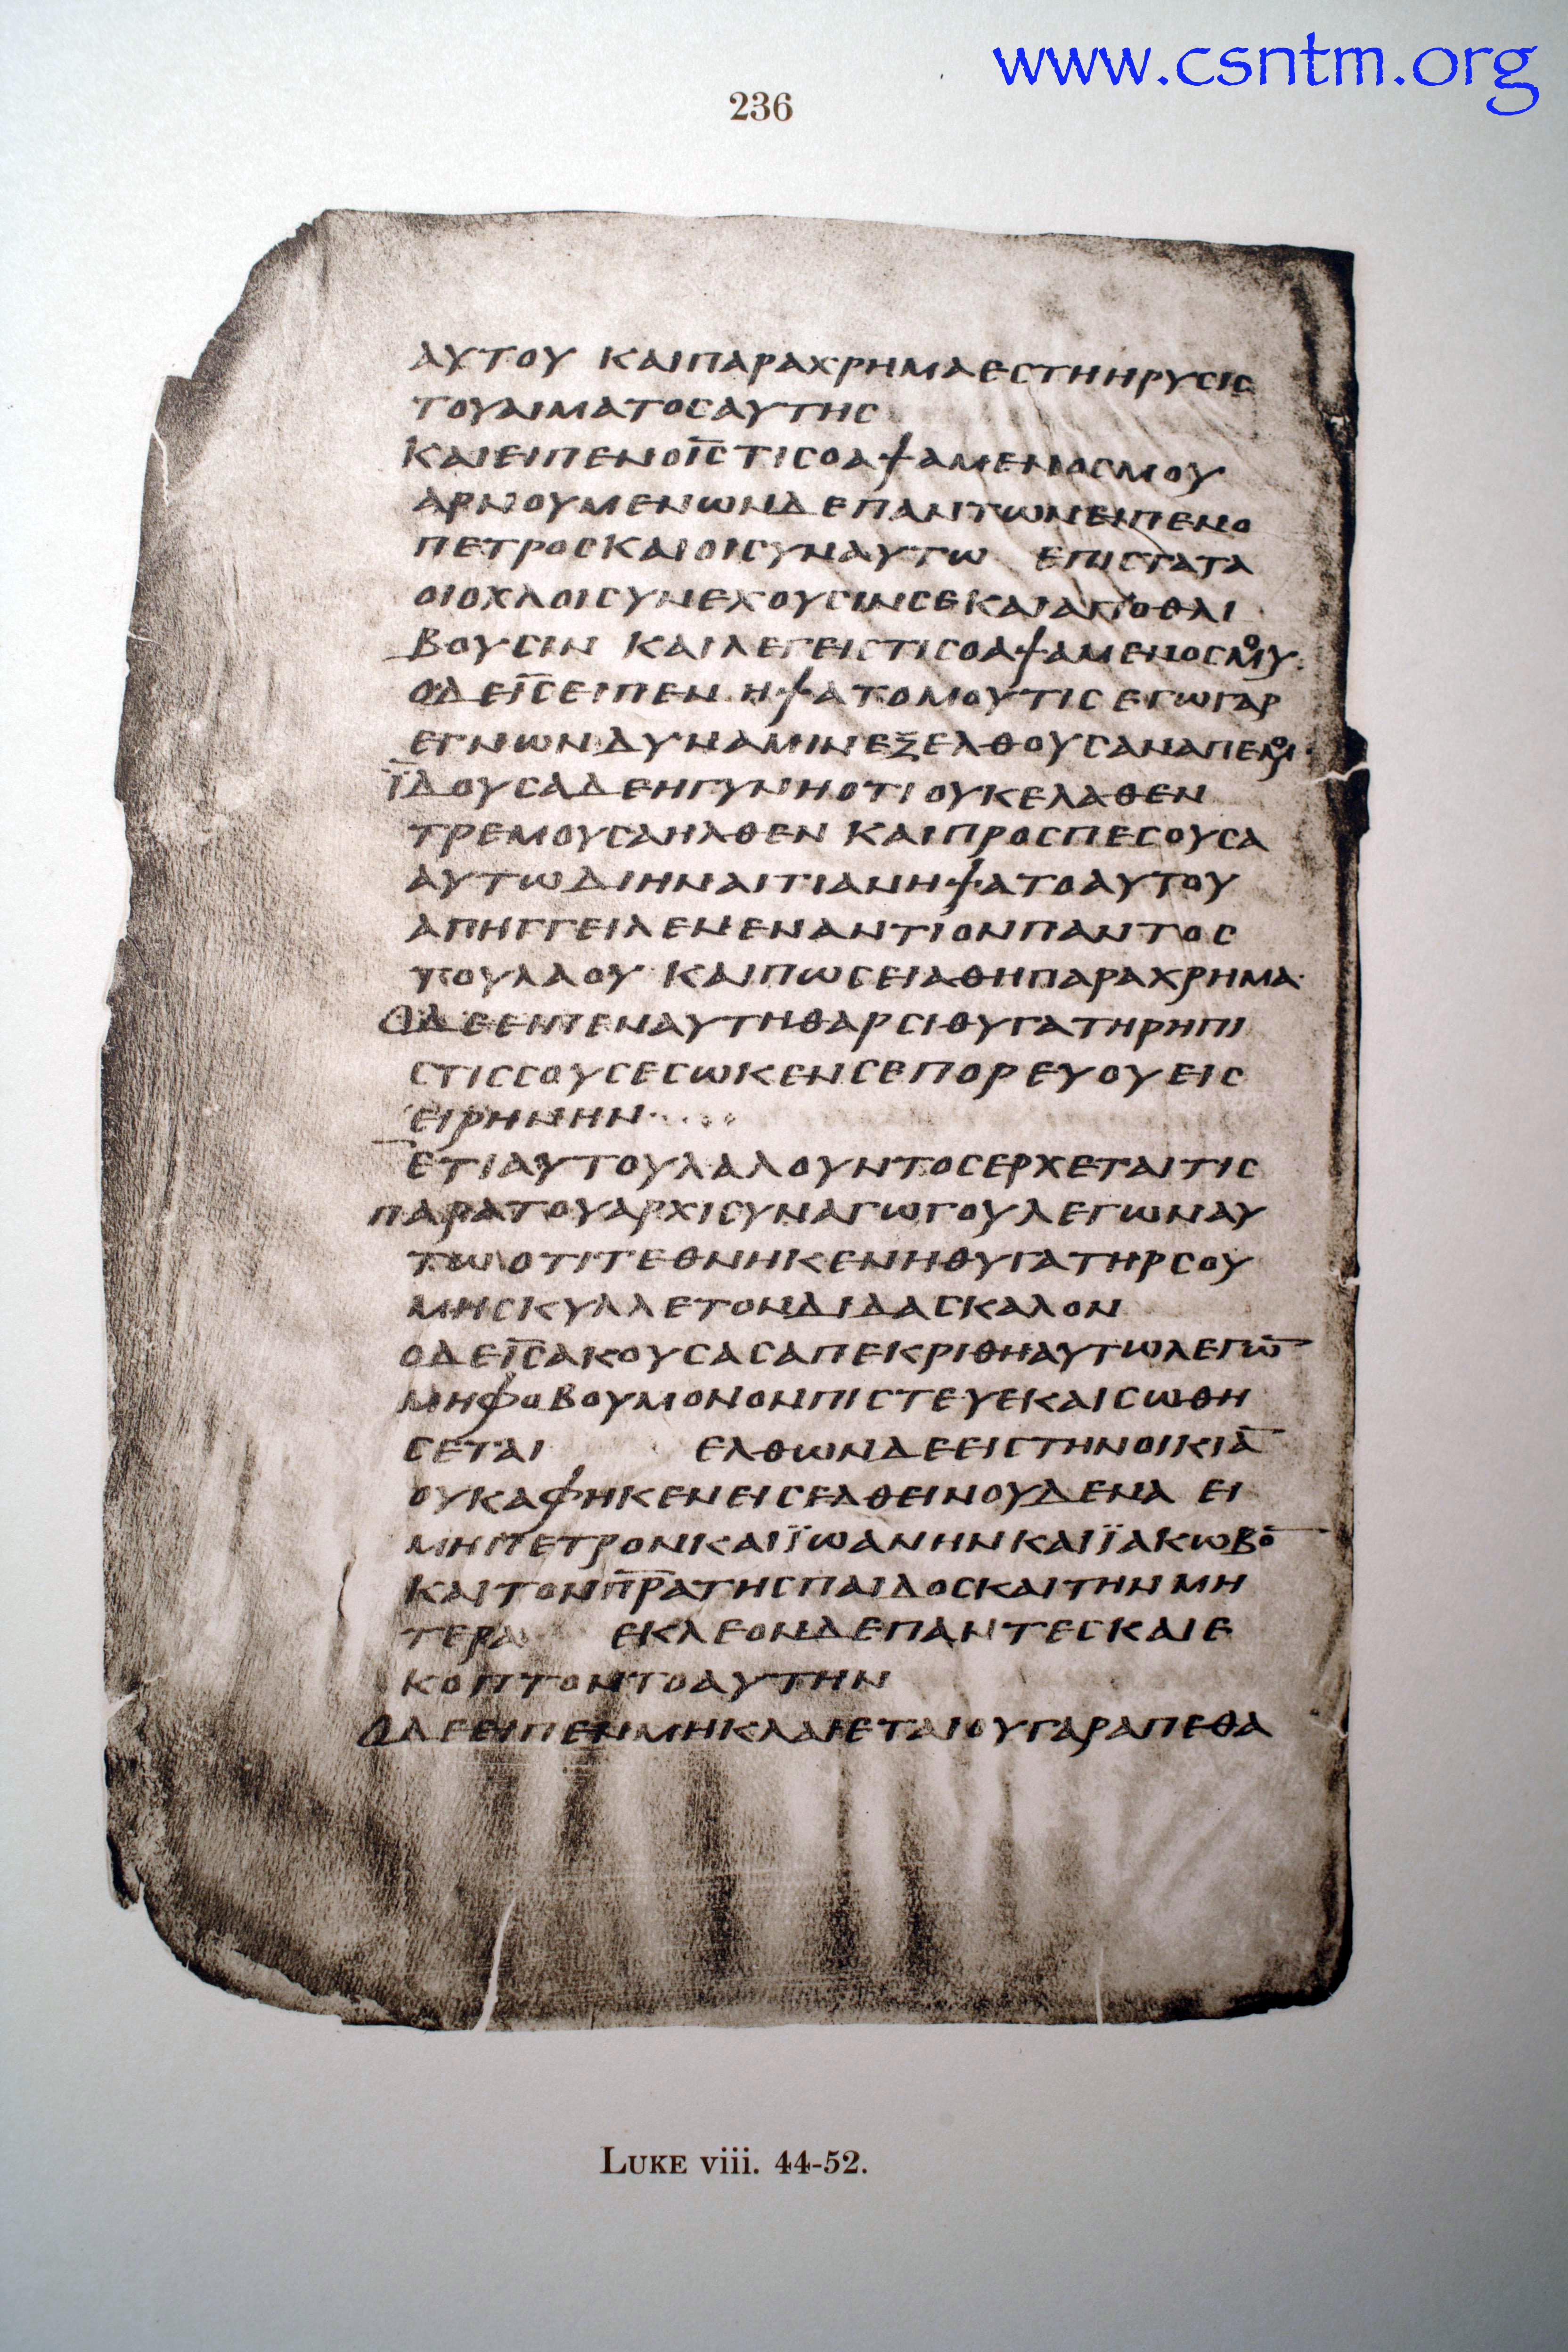 www.csntm.org
236
ΑΥΤΟΥ ΚΑΙΠΑΡΑΧΡΗΜΑΕΣΤΗΗΡΥΣΙΣ
ΤΟΥΑΙΜΑΤΟΣΑΥΤΗΣ
ΚΑΙΕΙΠΕΝΟΙ̅Σ̅ΤΙΣΟΑΨΑΜΕΝΟΣΜΟΥ
ΑΡΝΟΥΜΕΝΩΝΔΕΠΑΝΤΩΝΕΙΠΕΝΟ
ΠΕΤΡΟΣΚΑΙΟΙΣΥΝΑΥΤΩ ΕΠΙΣΤΑΤΑ
ΟΙΟΧΛΟΙΣΥΝΕΧΟΥΣΙΝΣΕΚΑΙΑΠΟΘΛΙ
ΒΟΥΣΙΝ ΚΑΙΛΕΓΕΙΣΤΙΣΟΑΨΑΜΕΝΟΣΜΟΥ·
ΟΔΕΙ̅Σ̅ΕΙΠΕΝ ΗΨΑΤΟΜΟΥΤΙΣ ΕΓΩΓΑΡ
ΕΓΝΩΝΔΥΝΑΜΙΝΕΞΕΛΘΟΥΣΑΝΑΠΕΜΟΥ·
ΪΔΟΥΣΑΔΕΗΓΥΝΗΟΤΙΟΥΚΕΛΑΘΕΝ
ΤΡΕΜΟΥΣΑΗΛΘΕΝ ΚΑΙΠΡΟΣΠΕΣΟΥΣΑ
ΑΥΤΩΔΙΗΝΑΙΤΙΑΝΗΨΑΤΟΑΥΤΟΥ
ΑΠΗΓΓΕΙΛΕΝΕΝΑΝΤΙΟΝΠΑΝΤΟΣ
ΤΟΥΛΑΟΥ ΚΑΙΠΩΣΕΙΑΘΗΠΑΡΑΧΡΗΜΑ·
ΟΔΕΕΙΠΕΝΑΥΤΗΘΑΡΣΙΘΥΓΑΤΗΡΗΠΙ
ΣΤΙΣΣΟΥΣΕΣΩΚΕΝΣΕΠΟΡΕΥΟΥΕΙΣ
ΕΙΡΗΝΗΝ·
ΕΤΙΑΥΤΟΥΛΑΛΟΥΝΤΟΣΕΡΧΕΤΑΙΤΙΣ
ΠΑΡΑΤΟΥΑΡΧΙΣΥΝΑΓΩΓΟΥΛΕΓΩΝΑΥ
ΤΩΟΤΙΤΕΘΝΗΚΕΝΗΘΥΓΑΤΗΡΣΟΥ
ΜΗΣΚΥΛΛΕΤΟΝΔΙΔΑΣΚΑΛΟΝ
ΟΔΕΙ̅Σ̅ΑΚΟΥΣΑΣΑΠΕΚΡΙΘΗΑΥΤΩΛΕΓΩ̅
ΜΗΦΟΒΟΥΜΟΝΟΝΠΙΣΤΕΥΕΚΑΙΣΩΘΗ
ΣΕΤΑΙ ΕΛΘΩΝΔΕΕΙΣΤΗΝΟΙΚΙΑ̅
ΟΥΚΑΦΗΚΕΝΕΙΣΕΛΘΕΙΝΟΥΔΕΝΑ ΕΙ
ΜΗΠΕΤΡΟΝΚΑΙΪΩΑΝΗΝΚΑΙΪΑΚΩΒΟ̅
ΚΑΙΤΟΝΠ̅Ρ̅Α̅ΤΗΣΠΑΙΔΟΣΚΑΙΤΗΝΜΗ
ΤΕΡΑ ΕΚΛΕΟΝΔΕΠΑΝΤΕΣΚΑΙΕ
ΚΟΠΤΟΝΤΟΑΥΤΗΝ
ΟΔΕΕΙΠΕΝΜΗΚΛΑΙΕΤΑΙΟΥΓΑΡΑΠΕΘΑ
LUKE viii. 44-52.